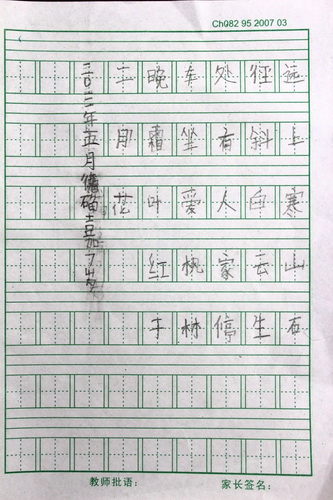 Ch082 95 2007 03
远上寒山石
径斜白云生
处有人家停
车坐爱枫林
晚霜叶红于
二月花
年五月 土豆 岁
教师批语： 家长签名：